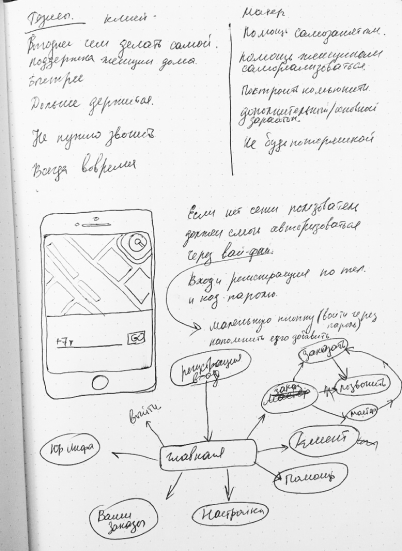 Тезисы. клиент.
Выгоднее чем делать самой.
поддержка женщин дома.
Быстрее
Дольше держится.
Не нужно звонить
Всегда вовремя
мастер
Помощь самозанятым.
помощь женщинам
самореализоваться
Построить комьюнити
дополнительный/основной
заработок.
Не будь потеряшкой
Если нет сети пользователь
должен смочь авторизоваться
через вай-фай.
Вход и регистрация по тел.
и код-паролю.
маленькую кнопку (войти через
напомнить его добавить пароль)
+7
GO
регистрация
вход
Войти
Юр инфа
главная
Ваши
заказы
Настройки
Помощь
Клиент
заказ
заказать
позвонить